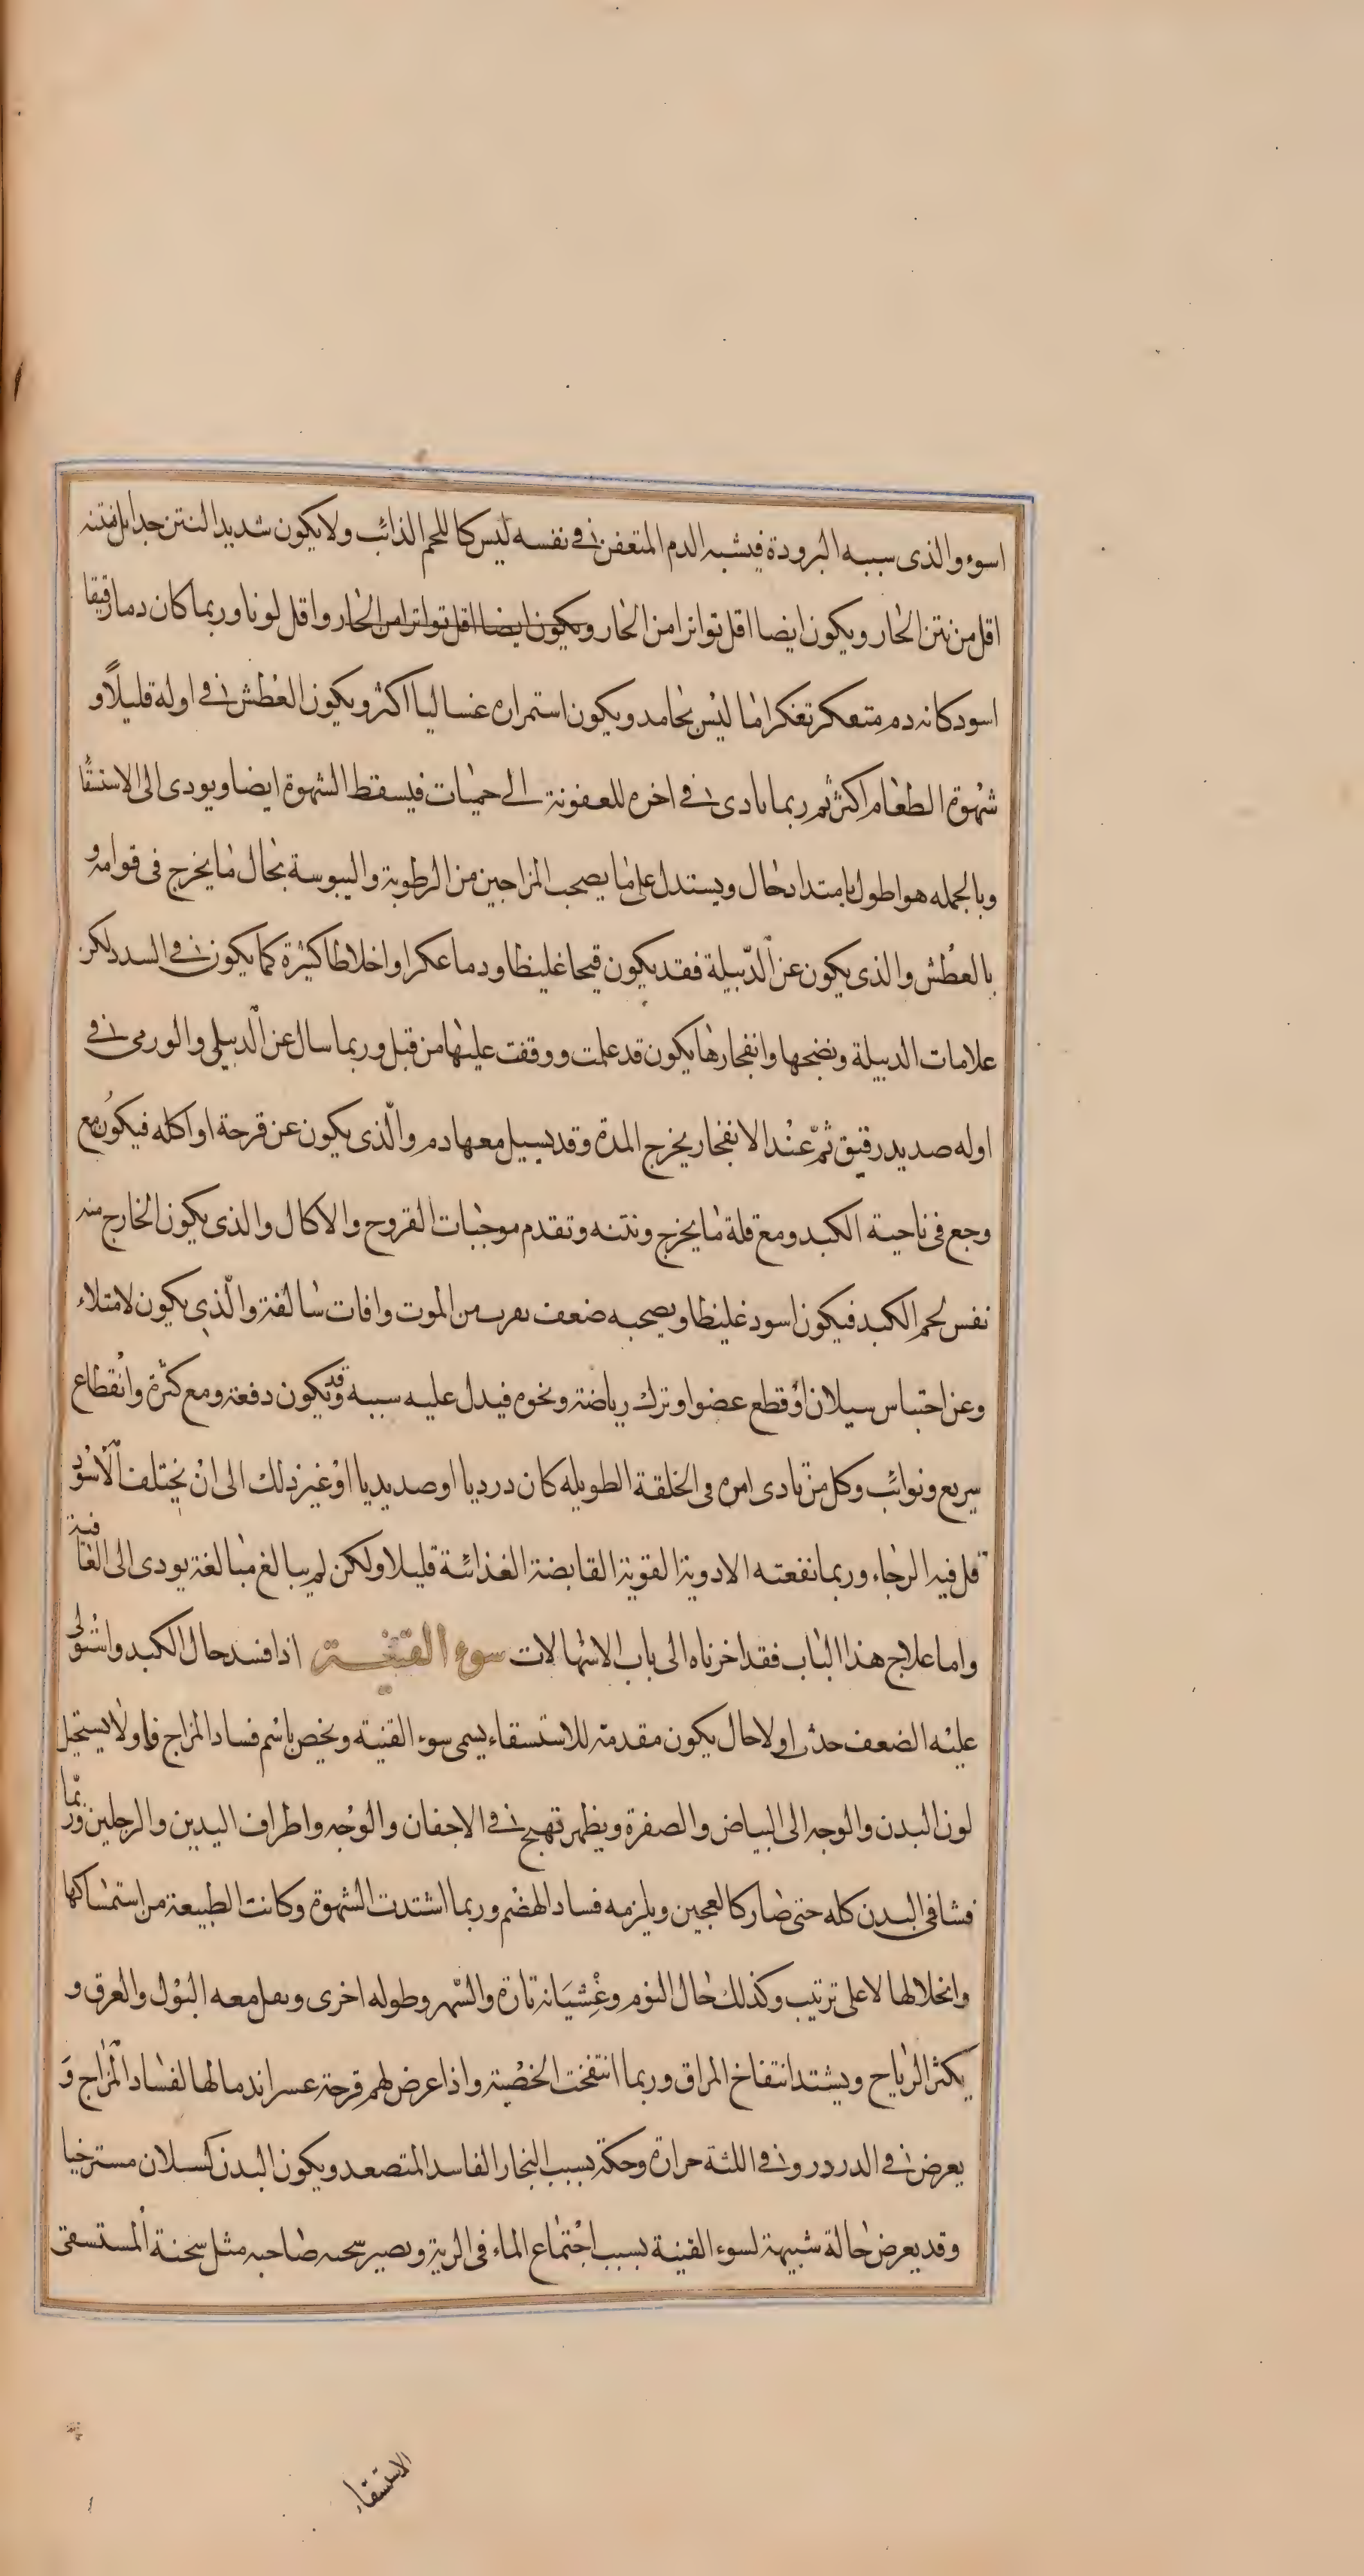 اسوء والذى سببه البرودة فيشبه الدم المتعفن فى نفسه ليس كاللحم الذائب ولا يكون شديد النتن جدا بل نتنه
اقل من نتن الحار ويكون ايضا اقل تواترا من الحار ويكون ايضا اقل تواترا من الحار واقل لونا وربما كان دما رقيقا
اسود كانه دم متعكر تعكرا ما ليس بجامد ويكون استمراره غساليا اكثر ويكون العطش فى اوله قليلاً و
شهوة الطعام اكثر ثم ربما تادى فى اخره للعفونة الى حميات فيسقط الشهوة ايضا ويودى الى الاستسقا
وبالجمله هو اطول امتداد حال ويستدل على ما يصحب المزاجين من الرطوبة واليبوسة بحال ما يخرج فى قوامه و
بالعطش والذى يكون عن الدّبيلة فقد يكون قيحا غليظا ودما عكرا واخلاطا كثيرة كما يكون فى السدد لكن
علامات الدبيلة ونضجها وانفجارها يكون قد علمت ووقفت عليها من قبل وربما سال عن الدبيلى والورمى فى
اوله صديد رقيق ثمّ عند الانفجار يخرج المدة وقد يسيل معها دم والّذى يكون عن قرحة او اكله فيكون مع
وجع فى ناحية الكبد ومع قلة ما يخرج ونتنه وتقدم موجبات القروح والاكال والذى يكون الخارج منه
نفس لحم الكبد فيكون اسود غليظا ويصحبه ضعف يقرب من الموت وافات سالفة والّذى يكون لامتلاء
وعن احتباس سيلان او قطع عضو او ترك رياضة ونحوه فيدل عليه سببه وقد يكون دفعة ومع كثرة وانقطاع
سريع ونوائب وكل من تادى امره فى الخلفة الطويله كان درديا او صديديا او غير ذلك الى ان يختلف الاسود
قل فيه الرجاء وربما نفعته الادوية القوية القابضة الغذائية قليلا ولكن لم يبالغ مبالغة يودى الى العافية
واما علاج هذا الباب فقد اخرناه الى باب الاسهالات سوء القنية اذا فسد حال الكبد واستولى
عليه الضعف حدث اولا حال يكون مقدمة للاستسقاء يسمى سوء القنية ويخص باسم فساد المزاج فاولا يستحيل
لون البدن والوجه الى البياض والصفرة ويظهر تهبج فى الاجفان والوجه واطراف اليدين والرجلين وربّما
فشا فى البدن كله حتى صار كالعجين ويلزمه فساد الهضم وربما اشتدت الشهوة وكانت الطبيعة من استمساكها
وانحلالها لا على ترتيب وكذلك حال النوم وغِشْيَانه تارة والسّهر وطوله اخرى ويقل معه البول والعرق و
يكثر الرياح ويشتد انتفاخ المراق وربما انتفخت الخصية واذا عرض لهم قرحة عسر اندمالها لفساد المزاج وَ
يعرض فى الدردر وفى اللثة حرارة وحكة بسبب البخار الفاسد المتصعد ويكون البدن كسلان مسترخيا
وقد يعرض حالة شبيهة لسوء القينة بسبب اجتماع الماء فى الرية ويصير سحنة صاحبه مثل سحنة المستسقى
الاستسقاء